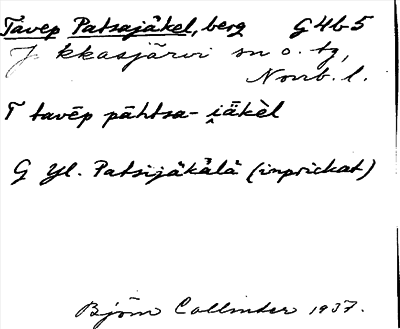 Tavep Patsajäkel, berg G4b5
Jukkasjärvi sn o. tg,
Norrb. l.
T tavēp pāhtsa-i̯äkèl
G Yl. Patsijäkälä (inprickat)
Björn Collinder 1937.